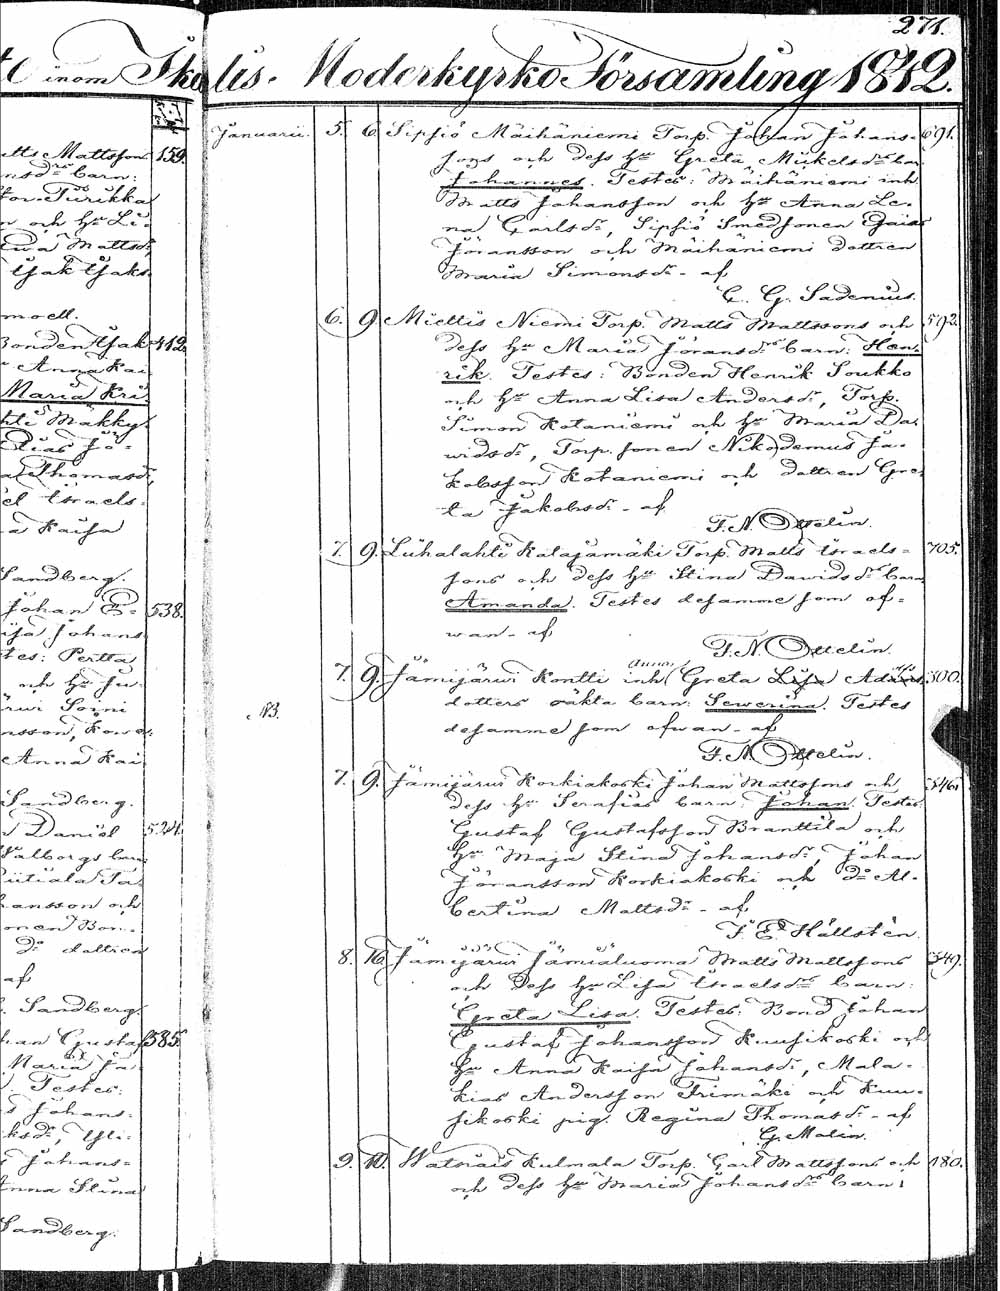 271.
inom Ikalis Moderkyrko Församling 1842.
Mattssons 159.
barn:
Turikka
och hu Li-
Ewa Mattsdr
Isak Isaks-
moell.
Bonden Isak 412.
Anna Kai
Maria Kri
Mäkky
Elias Jö-
Thomasdr
Israels-
Kaisa
Sandberg.
Johan E- 538.
Johans
tes: Pertta
och hu Ju-
Soini
Anna Kai
Sandberg.
Daniel 524.
Walborgs barn
hansson och
Bon-
do dottren
af
Sandberg.
Gustaf 585.
Maria Ja-
Testes:
Johans-
Johans-
Anna Stina
Sandberg.
Januarii. 5. 6. Sipsiö Mäihäniemi Torp. Johan Johans- 691.
sons och dess hu Greta Mickelsdrs barn
Johannes. Testes: Mäihäniemi inh.
Matts Johansson och hu Anna Le-
na Carlsdr, Sipsiö Smedsonen Esaias
Jöransson och Mäihäniemi dottren
Maria Simonsdr - af
C. G. Sadenius.
6. 9. Miettis Niemi Torp. Matts Mattssons och 592.
dess hu Maria Jöransdrs barn: Hen-
rik. Testes: Bonden Henrik Soukko
och hu Anna Lisa Andersdr, Torp.
Simon Kotaniemi och hu Maria Da-
widsdr, Torp. sonen Nikodemus Ja-
kobsson Kotaniemi och dottren Gre-
ta Jakobsdr - af
F. N. Ottelin.
7. 9. Luhalahti Katajamäki Torp. Matts Israels- 705.
sons och dess hu Stina Davidsdrs barn
Amanda. Testes desamme som of-
wan - af
F. N. Ottelin.
Anna
7. 9. Jämijärwi Kontti inh. Greta Lisa 500.
NB. dotters oäkta barn: Sewerina. Testes
desamme som ofwan - af
F. N. Ottelin.
7. 9. Jämijärwi Korkiakoski Johan Mattssons och 546.
dess hu Serafias barn: Johan. Testes:
Gustaf Gustafsson Branttila och
hu Maja Stina Johansdr, Johan
Jöransson Korkiakoski och do Al-
bertina Mattsdr - af
F. E. Hällstén.
8. 16. Jämijärwi Jämiäluoma Matts Mattssons 549.
och dess hu Lisa Israelsdrs barn:
Greta Lisa. Testes: Bond. Johan
Gustaf Johansson Kuusikoski och
hu Anna Kaisa Johansdr, Mala-
kias Andersson Trimäki och Kuu-
sikoski pig. Regina Thomasdr - af
G. Malin.
9. 10. Watsiais Kulmala Torp. Carl Mattssons och 180.
och dess hu Maria Johansdrs barn: